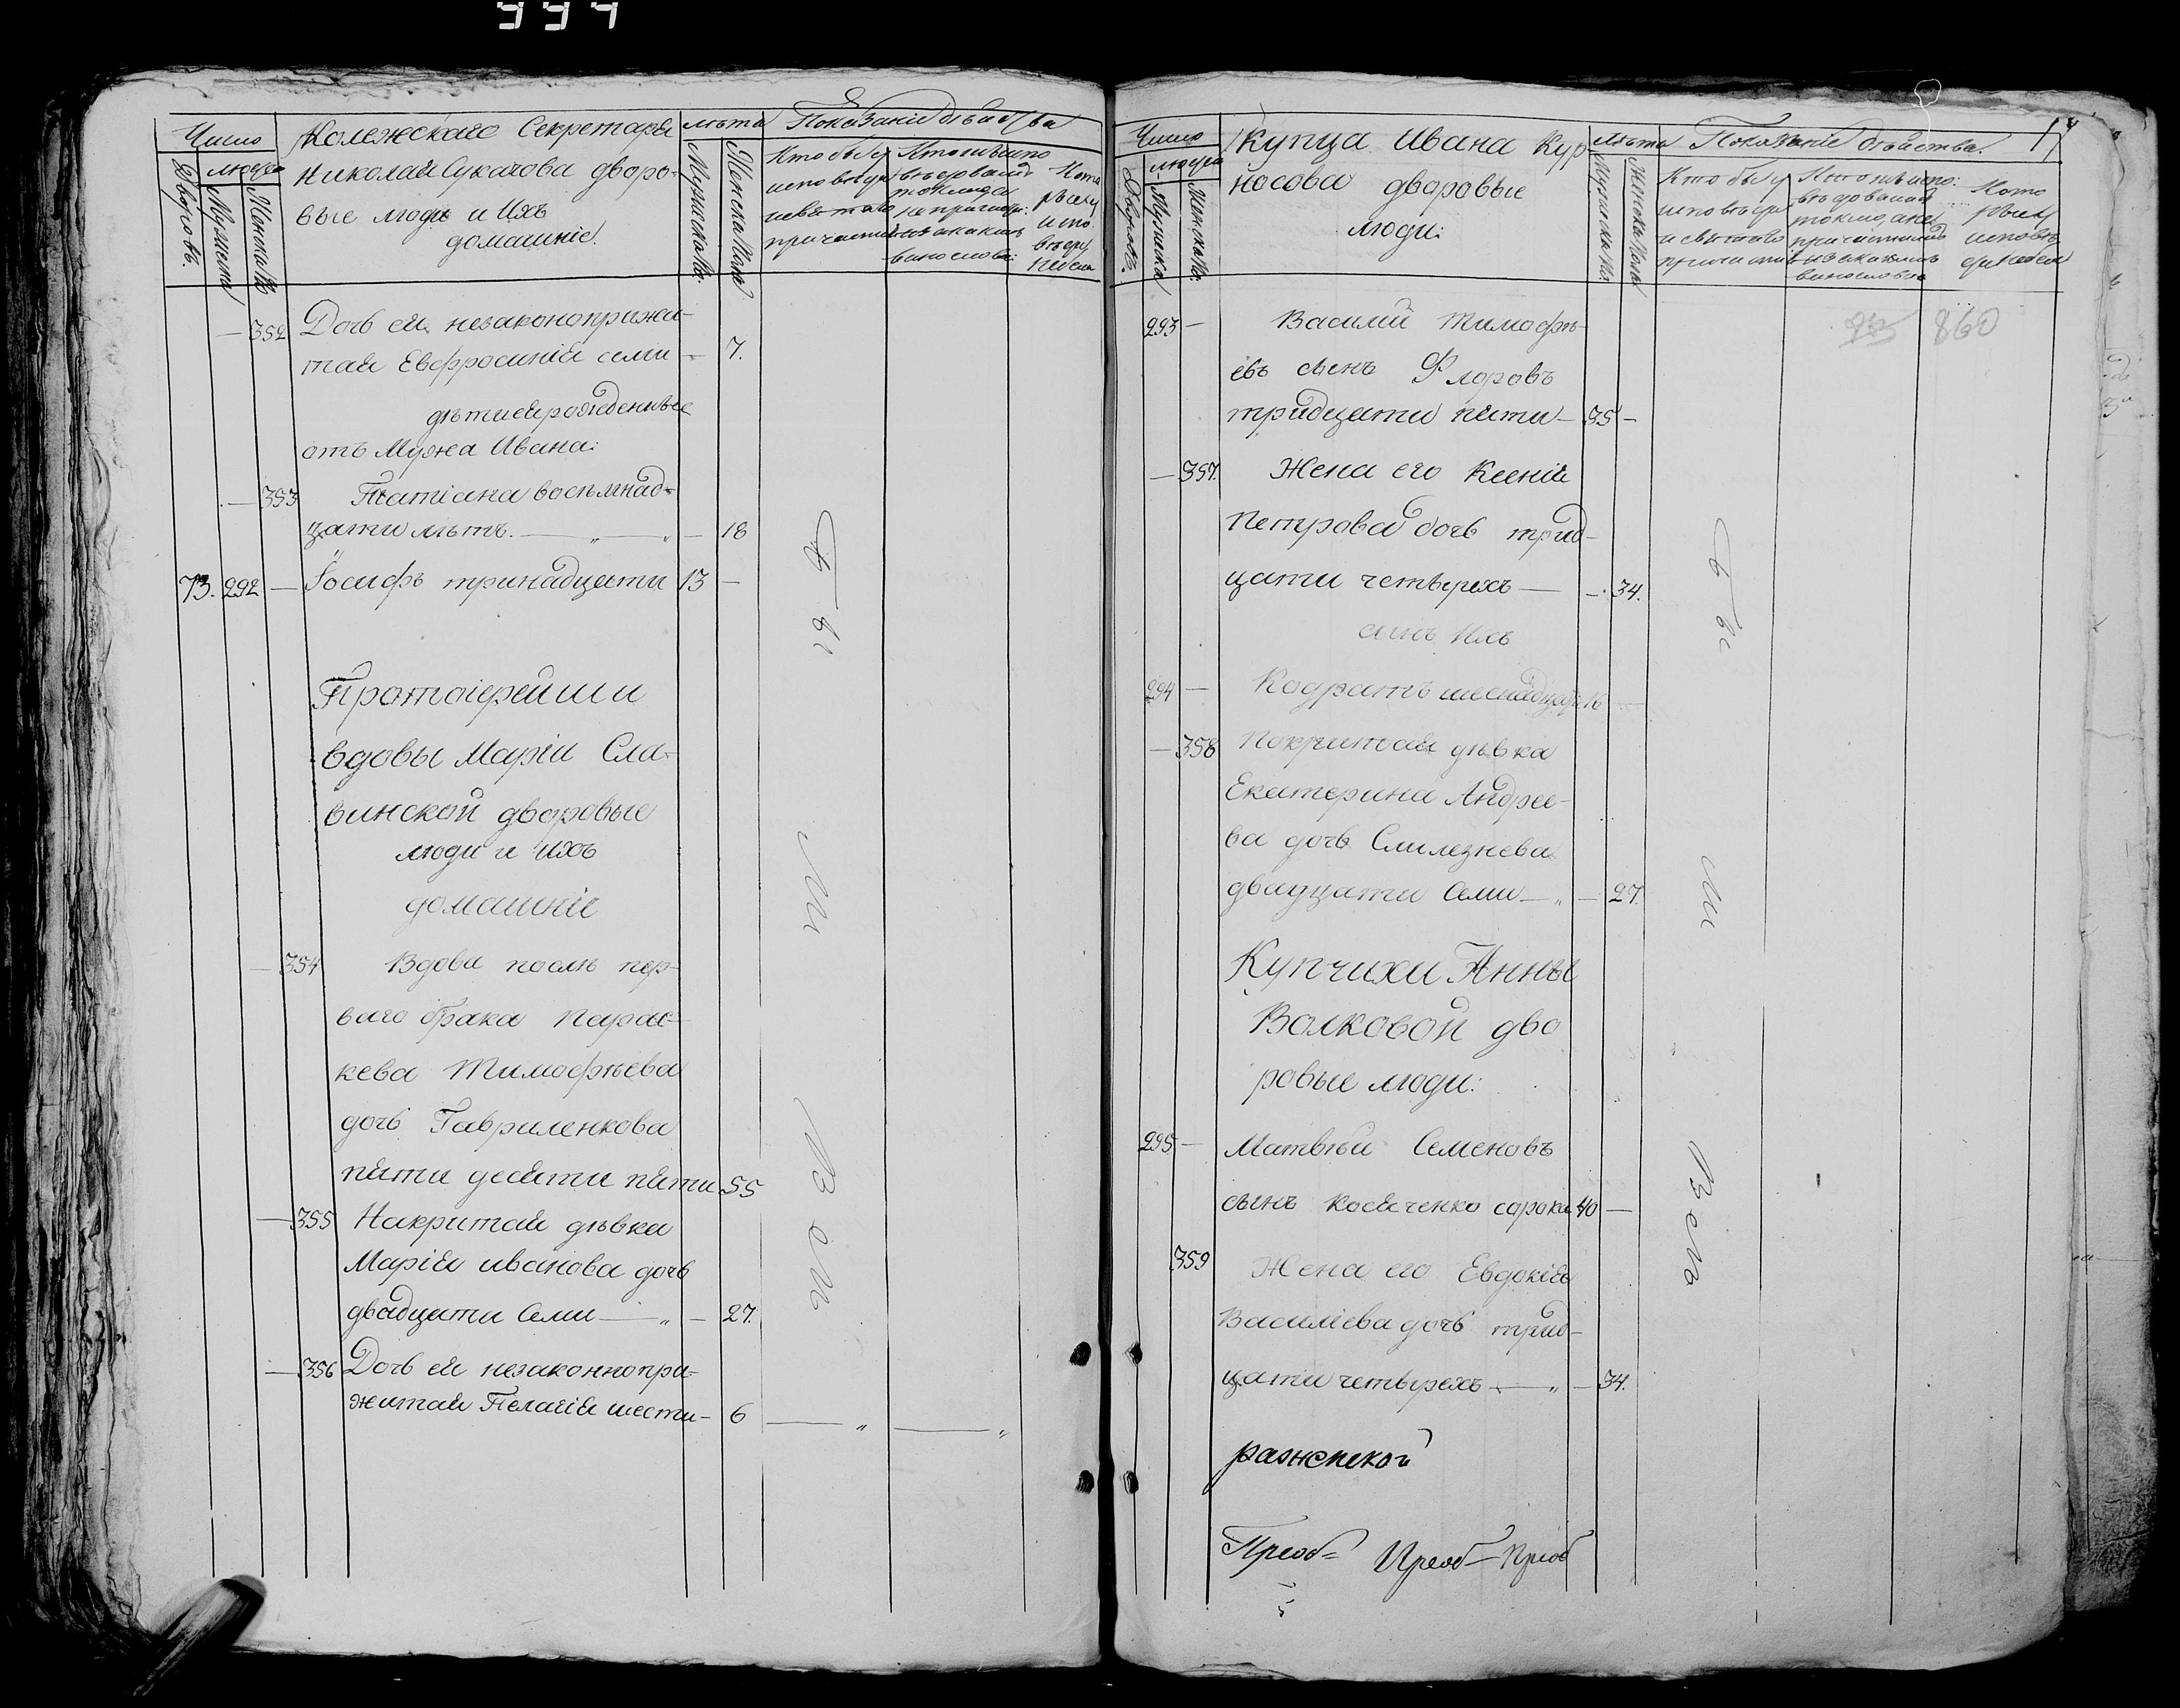 Число
Колежскаго Секретаря
лѣта
Показаніе дѣйства
людей
Николая Сукачова дворо-
вые люди и Ихъ
домашніе.
Дворовъ.
Мужеска
Женска
Мужеска По.
Женска Пола
Кто былъ у
исповѣди
и святаго
причастія
Кто исповѣдовался
токмо, а
не причасти
за какимъ
винословіемъ
Кото
рые у
испо
вѣди
небыли
— 352 Дочь ея незаконоприжи-
тая Евфросинія семи — 7.
дѣти ея рожденные
отъ Мужа Ивана:
— 353 Татіана восѣмнад-
цати лѣтъ. — „ — „ — 18
73. 292 — Іосифъ тринадцати 13 —
Протоіерейши
вдовы Маріи Сла-
винской дворовые
люди и ихъ
домашніе
— 354 Вдова послѣ пер-
ваго брака Парас-
кева Тимофѣева
дочь Гавриленкова
пяти десяти пяти 55
— 355 Накритая дѣвка
Марія иванова дочь
двадцати семи — „ — 27.
— 356 Дочь ея незаконнопри-
житая Пелагія шести — 6 — „ — „
Бы
ли
Всѣ
Число
Купца Ивана Кур
лѣта
Показаніе дѣйства.
17
людей
носова дворовые
люди:
Дворовъ.
Мужеска
Женска По.
Мужеска По.
Женска Пола
Кто былъ у
исповѣди
и святаго
причастія
Кто исповѣдовался
токмо, а не
причастился
за какимъ
винословіемъ
Кото
рые у
исповѣ
ди небыли
293 — Василій Тимофѣ-
евъ сынъ Флоровъ
тридцати пяти — 35 —
860
— 357. Жена его Ксенія
Петрова дочь трид-
цати четырехъ — — 34.
сынъ Ихъ
294 — Кодратъ шеснадцати 16 —
— 358 Покритая дѣвка
Екатерина Андрее-
ва дочь Смилезнева
двадцати семи — „ — 27.
Купчихи Анны
Волковой дво
ровые люди:
295 — Матвѣй Семеновъ
сынъ Косяченко сорока 40 —
359 Жена его Евдокія
Василіева дочь трид-
цати четырехъ — „ — 34.
Бы
ли
Всѣ
Преоб= Преоб— Преоб